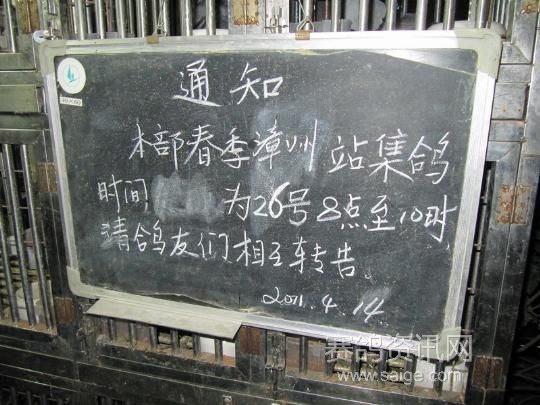 通知
本部春季漳州站集鸽
时间 为26号8点至10时,
请鸽友们相互转告。
2011.4.14
赛鸽资讯网
www.saige.com